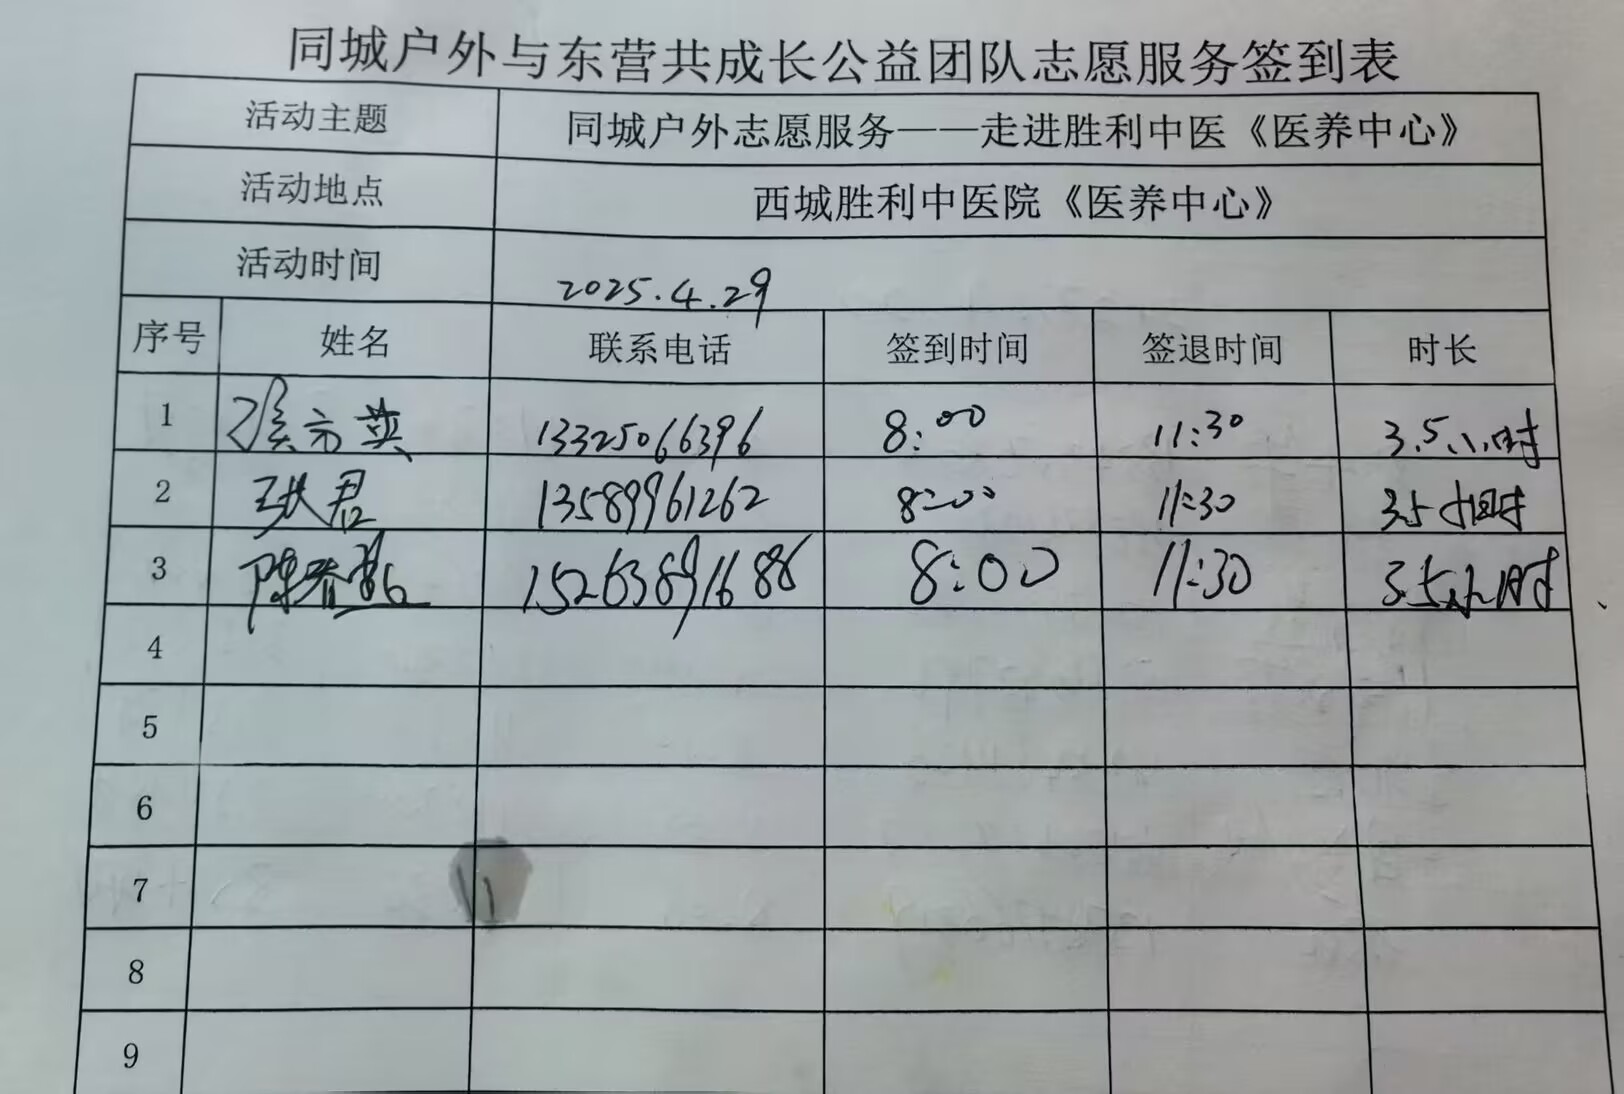 同城户外与东营共成长公益团队志愿服务签到表
活动主题 同城户外志愿服务——走进胜利中医《医养中心》
活动地点 西城胜利中医院《医养中心》
活动时间 2025.4.29
序号 姓名 联系电话 签到时间 签退时间 时长
1 13325066396 8:00 11:30 3.5小时
2 张君 13589961262 8:00 11:30 3.5小时
3 陈 15263891686 8:00 11:30 3.5小时
4
5
6
7
8
9